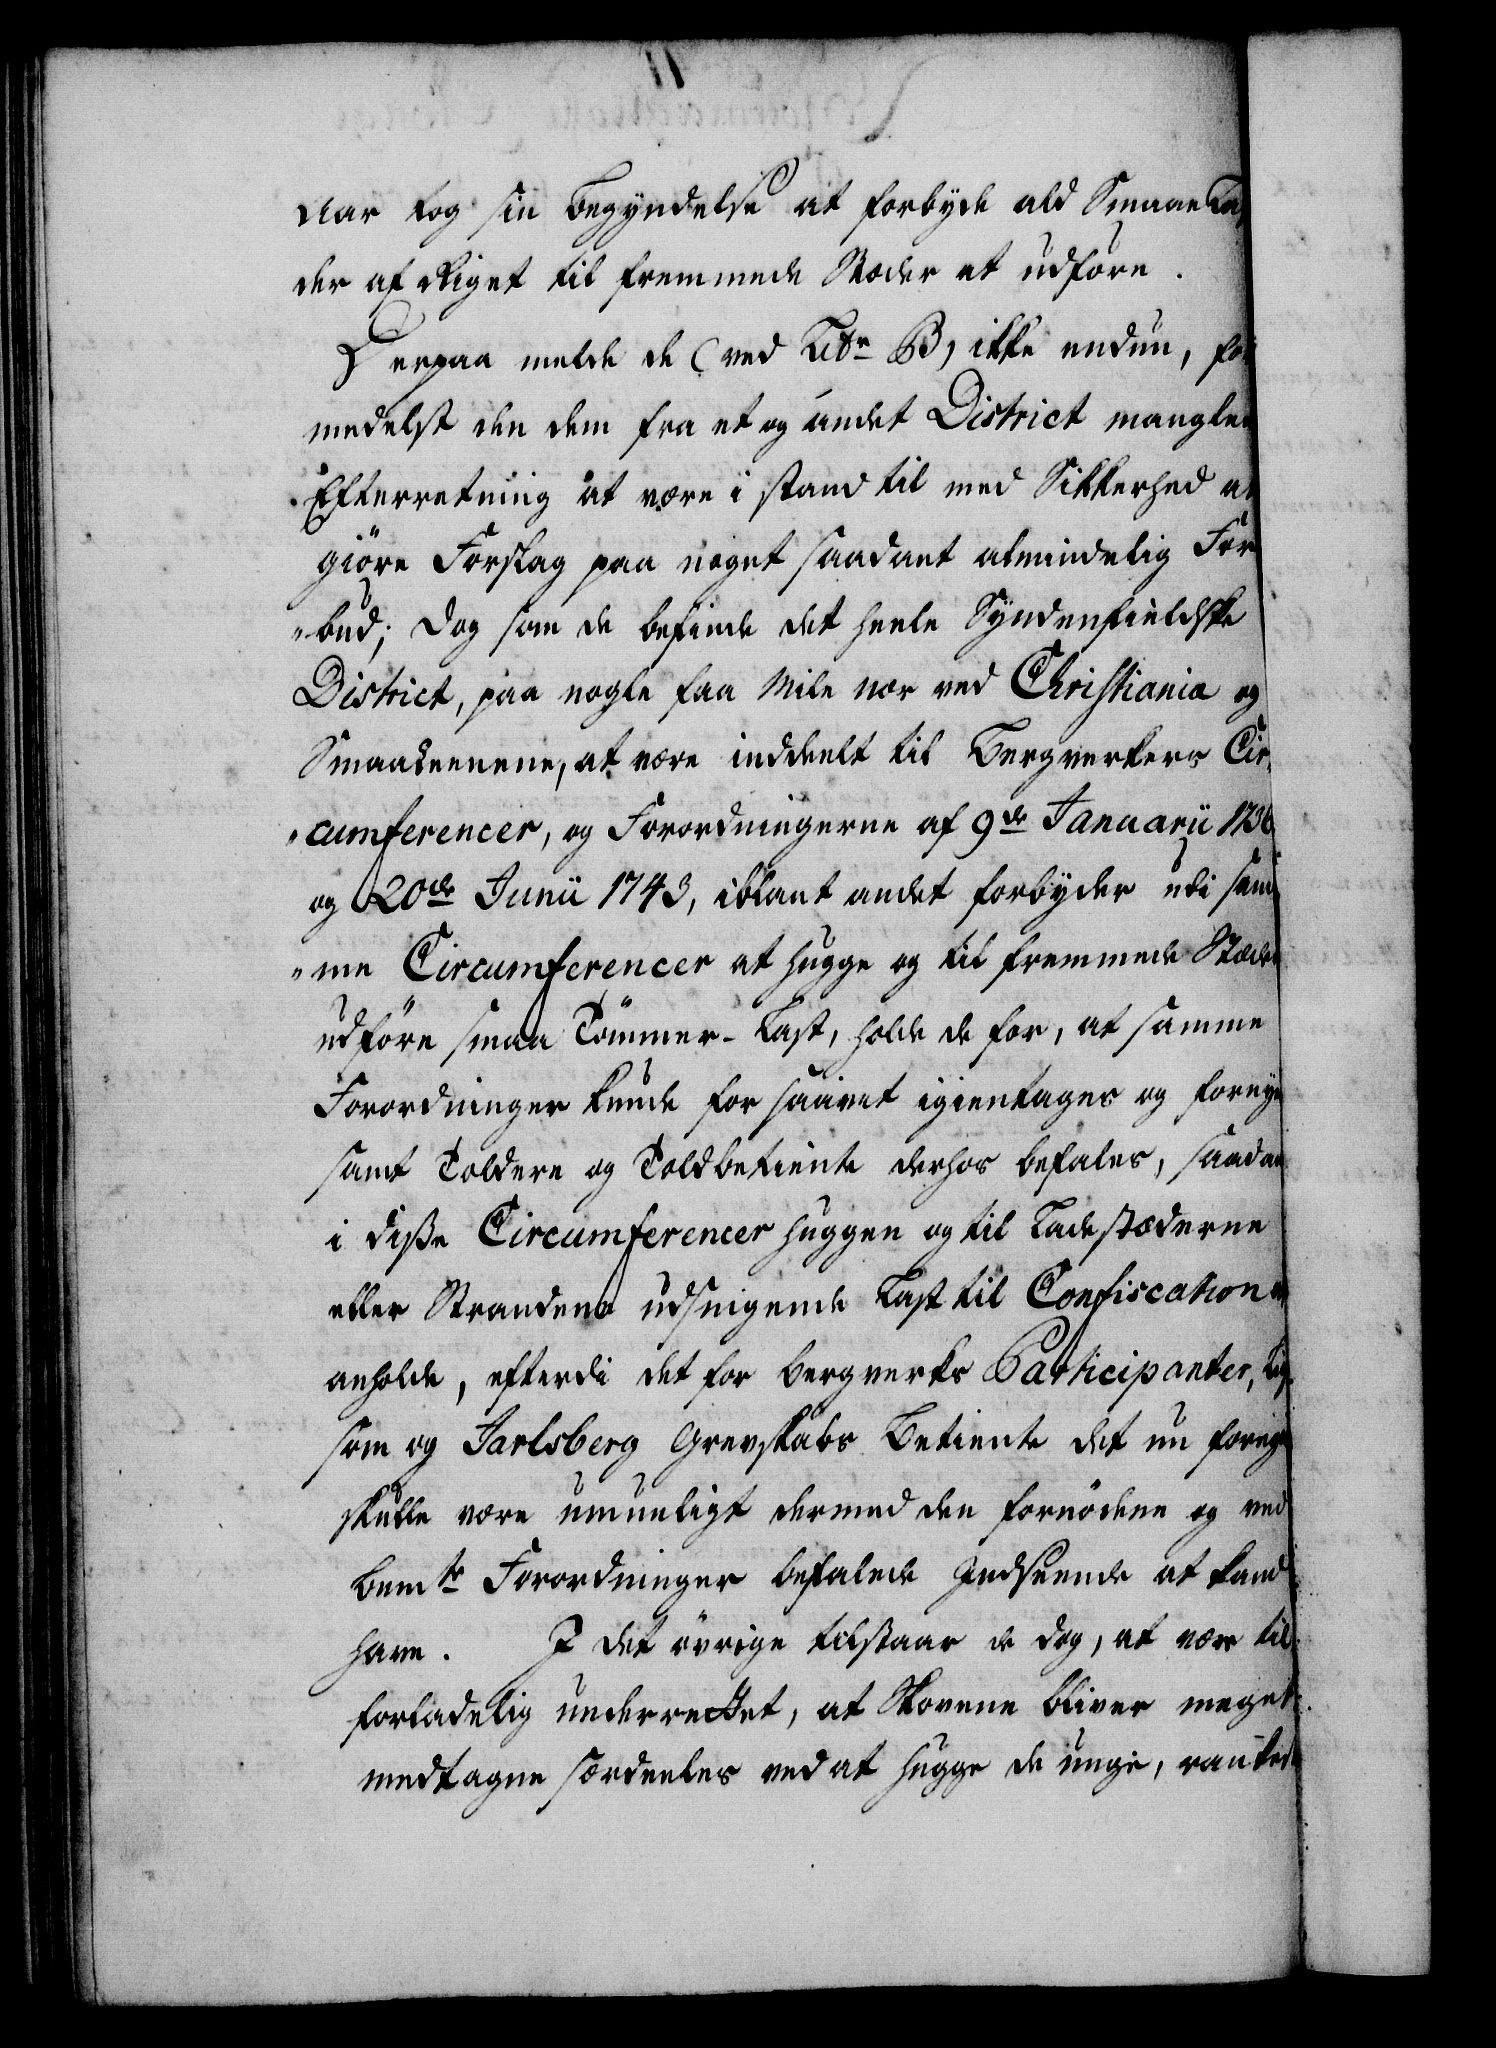 Aar tog sin Begyndelse at forbyde ald Smaae La
der af Riget til fremmede Stæder at udføre.
Herpaa melde de (ved Litr B) ikke endnu, for
medelst den dem fra et og andet District manglen
Efterretning at være i stand til med Sikkerhed at
giöre Forslag paa noget saadant almindelig For
"bud; dog som de befinde det heele Syndenfieldske
District, paa nogle faa Mile nær ved Christiania og
Smaaleenene, at være inddeelt til Bergverkers Cir,
"cumferencer, og Forordningerne af 9de Januarii 1736
og 20de Junii 1743, iblant andet forbyder udi sam
"me Circumferencer at hugge og til fremmede Stæder
udföre smaa Tömmer-Last, holde de for, at samme
Forordninger kunde for saavit igientages og fornye
samt Toldere og Toldbetiente derhos befales, saadan
i disse Circumferencer huggen og til Ladestæderne
eller Strandene udsnigende Last til Confiscation
anholde, efterdi det for Bergverks Participanter, lig
som og Jarlsberg Grevskabs Betiente det nu forige
skulle være umueligt dermed den fornödene og ved
bemte Forordninger befalede Indseende at kand
have. I det övrige tilstaar de dog, at være til
forladelig underrettet, at Skovene bliver meget
medtagne særdeeles ved at hugge de unge, ranke